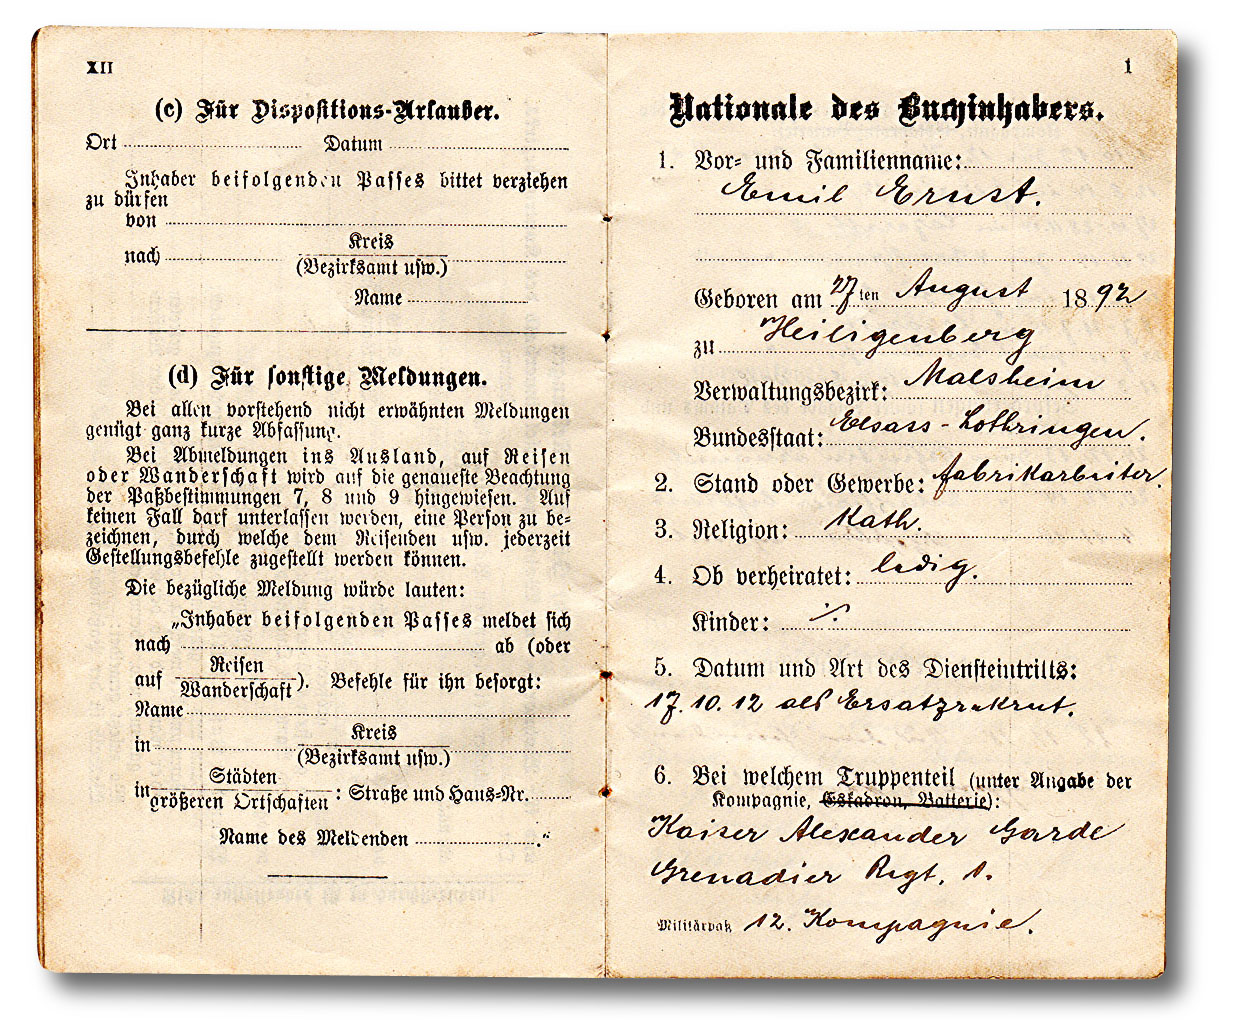 XII
(c) Für Dispositions-Urlauber.
Ort Datum
Inhaber beifolgenden Passes bittet verziehen
zu dürfen
von
nach Kreis
(Bezirksamt usw.)
Name
(d) Für sonstige Meldungen.
Bei allen vorstehend nicht erwähnten Meldungen
genügt ganz kurze Abfassung.
Bei Abmeldungen ins Ausland, auf Reisen
oder Wanderschaft wird auf die genaueste Beachtung
der Paßbestimmungen 7, 8 und 9 hingewiesen. Auf
keinen Fall darf unterlassen werden, eine Person zu be=
zeichnen, durch welche dem Reisenden usw. jederzeit
Gestellungsbefehle zugestellt werden können.
Die bezügliche Meldung würde lauten:
„Inhaber beifolgenden Passes meldet sich
nach ab (oder
auf Reisen
Wanderschaft). Befehle für ihn besorgt:
Name
in Kreis
(Bezirksamt usw.)
in Städten
größeren Ortschaften : Straße und Haus=Nr.
Name des Meldenden ."
1
Nationale des Buchinhabers.
1. Vor= und Familienname:
Emil Ernst.
Geboren am 27ten August 1892
zu Heiligenberg
Verwaltungsbezirk: Molsheim
Bundesstaat: Elsass-Lothringen.
2. Stand oder Gewerbe: Fabrikarbeiter.
3. Religion: Kath.
4. Ob verheiratet: ledig.
Kinder: ./.
5. Datum und Art des Diensteintritts:
17.10.12 als Ersatzrekrut.
6. Bei welchem Truppenteil (unter Angabe der
Kompagnie, Eskadron, Batterie):
Kaiser Alexander Garde
Grenadier Regt. 1.
Militärpaß 12. Kompagnie.